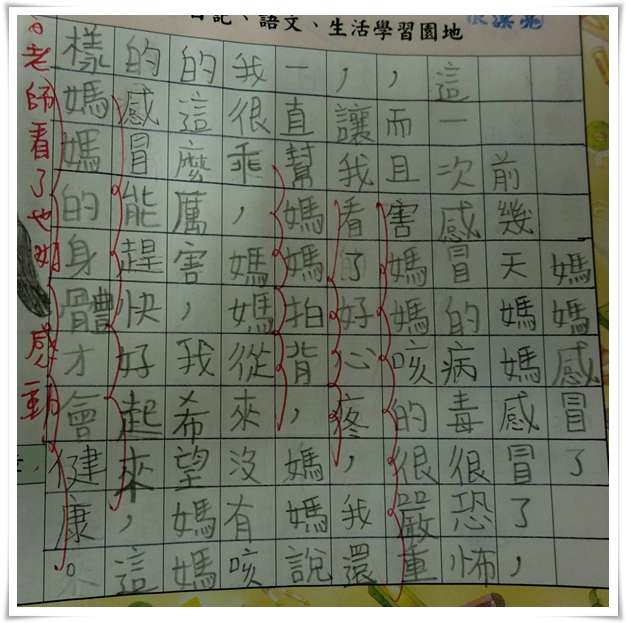 日記、語文、生活學習園地
媽媽感冒了
前幾天媽媽感冒了，
這一次感冒的病毒很恐怖，
，而且害媽媽咳的很嚴重
，讓我看了好心疼，我還
一直幫媽媽拍背，媽媽說
我很乖，媽媽從來沒有咳
的這麼厲害，我希望媽媽
的感冒能趕快好起來，這
樣媽媽的身體才會健康。
老師看了也好感動